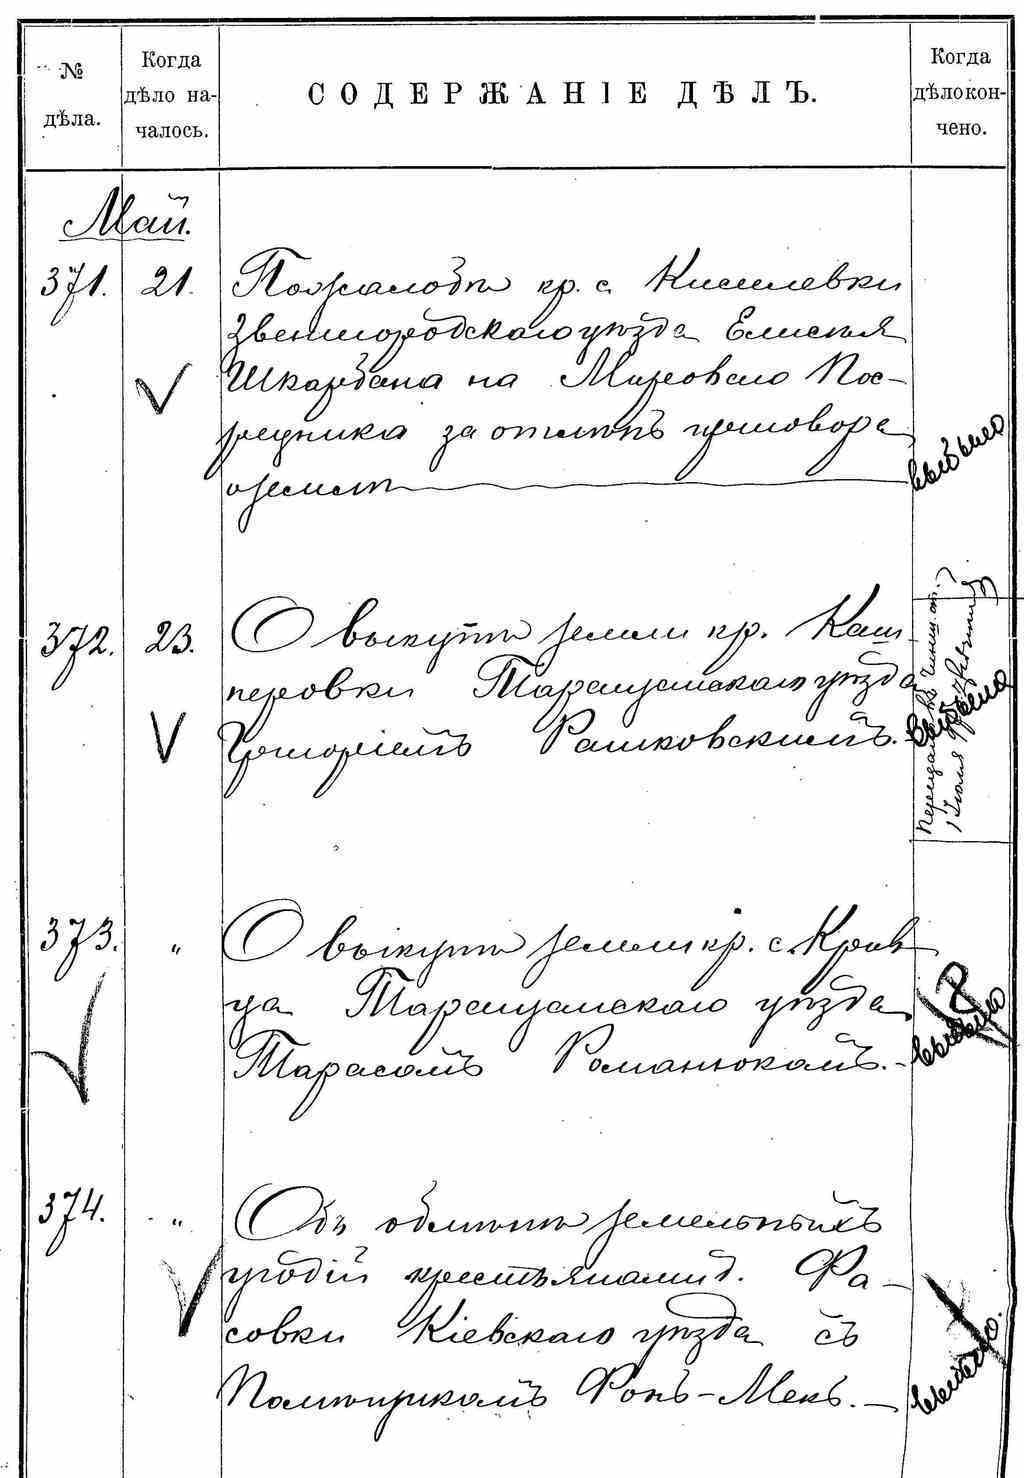 № дѣла.
Когда дѣло на-
чалось.
СОДЕРЖАНІЕ ДѢЛЪ.
Когда
дѣло кон-
чено.
Май.
371. 21. По жалобѣ кр. с. Киселевки
Звенигородскаго уѣзда Елисея
Шкарбана на Мироваго Пос-
редника за отмѣнъ приговора
о землѣ
выбыло
372. 23. О выкупѣ земли кр. Каш-
перовки Таращанскаго уѣзда
Григоріемъ Рашковскимъ.
выбыла
373. " О выкупѣ земли кр. с. Крив
ца Таращанскаго уѣзда
Тарасомъ Романюкомъ.-
выбыло
374. " Объ обмѣнѣ земельныхъ
угодій крестьянами д. Фа-
совки Кіевскаго уѣзда съ
Помѣщикомъ Фонъ-Мекъ.-
выбыло.